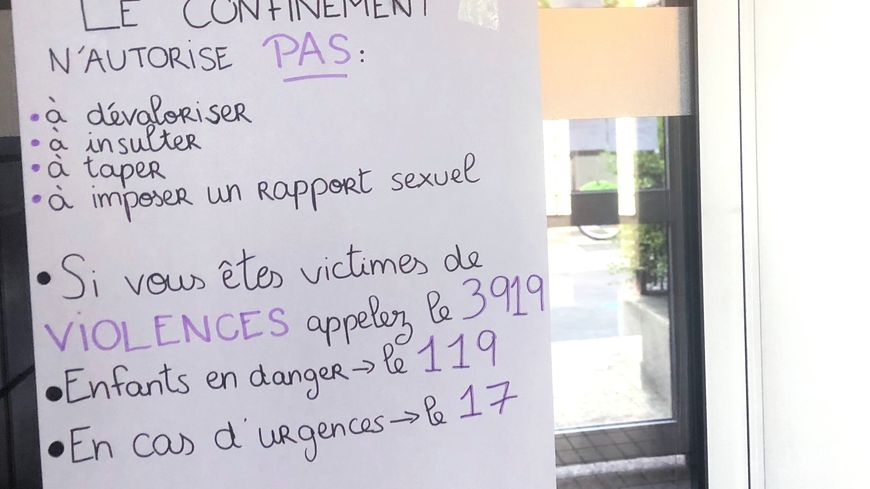 LE CONFINEMENT
N'AUTORISE PAS :
• à dévaloriser
• à insulter
• à taper
• à imposer un rapport sexuel
• Si vous êtes victimes de
VIOLENCES appelez le 3919
• Enfants en danger → le 119
• En cas d'urgences → le 17